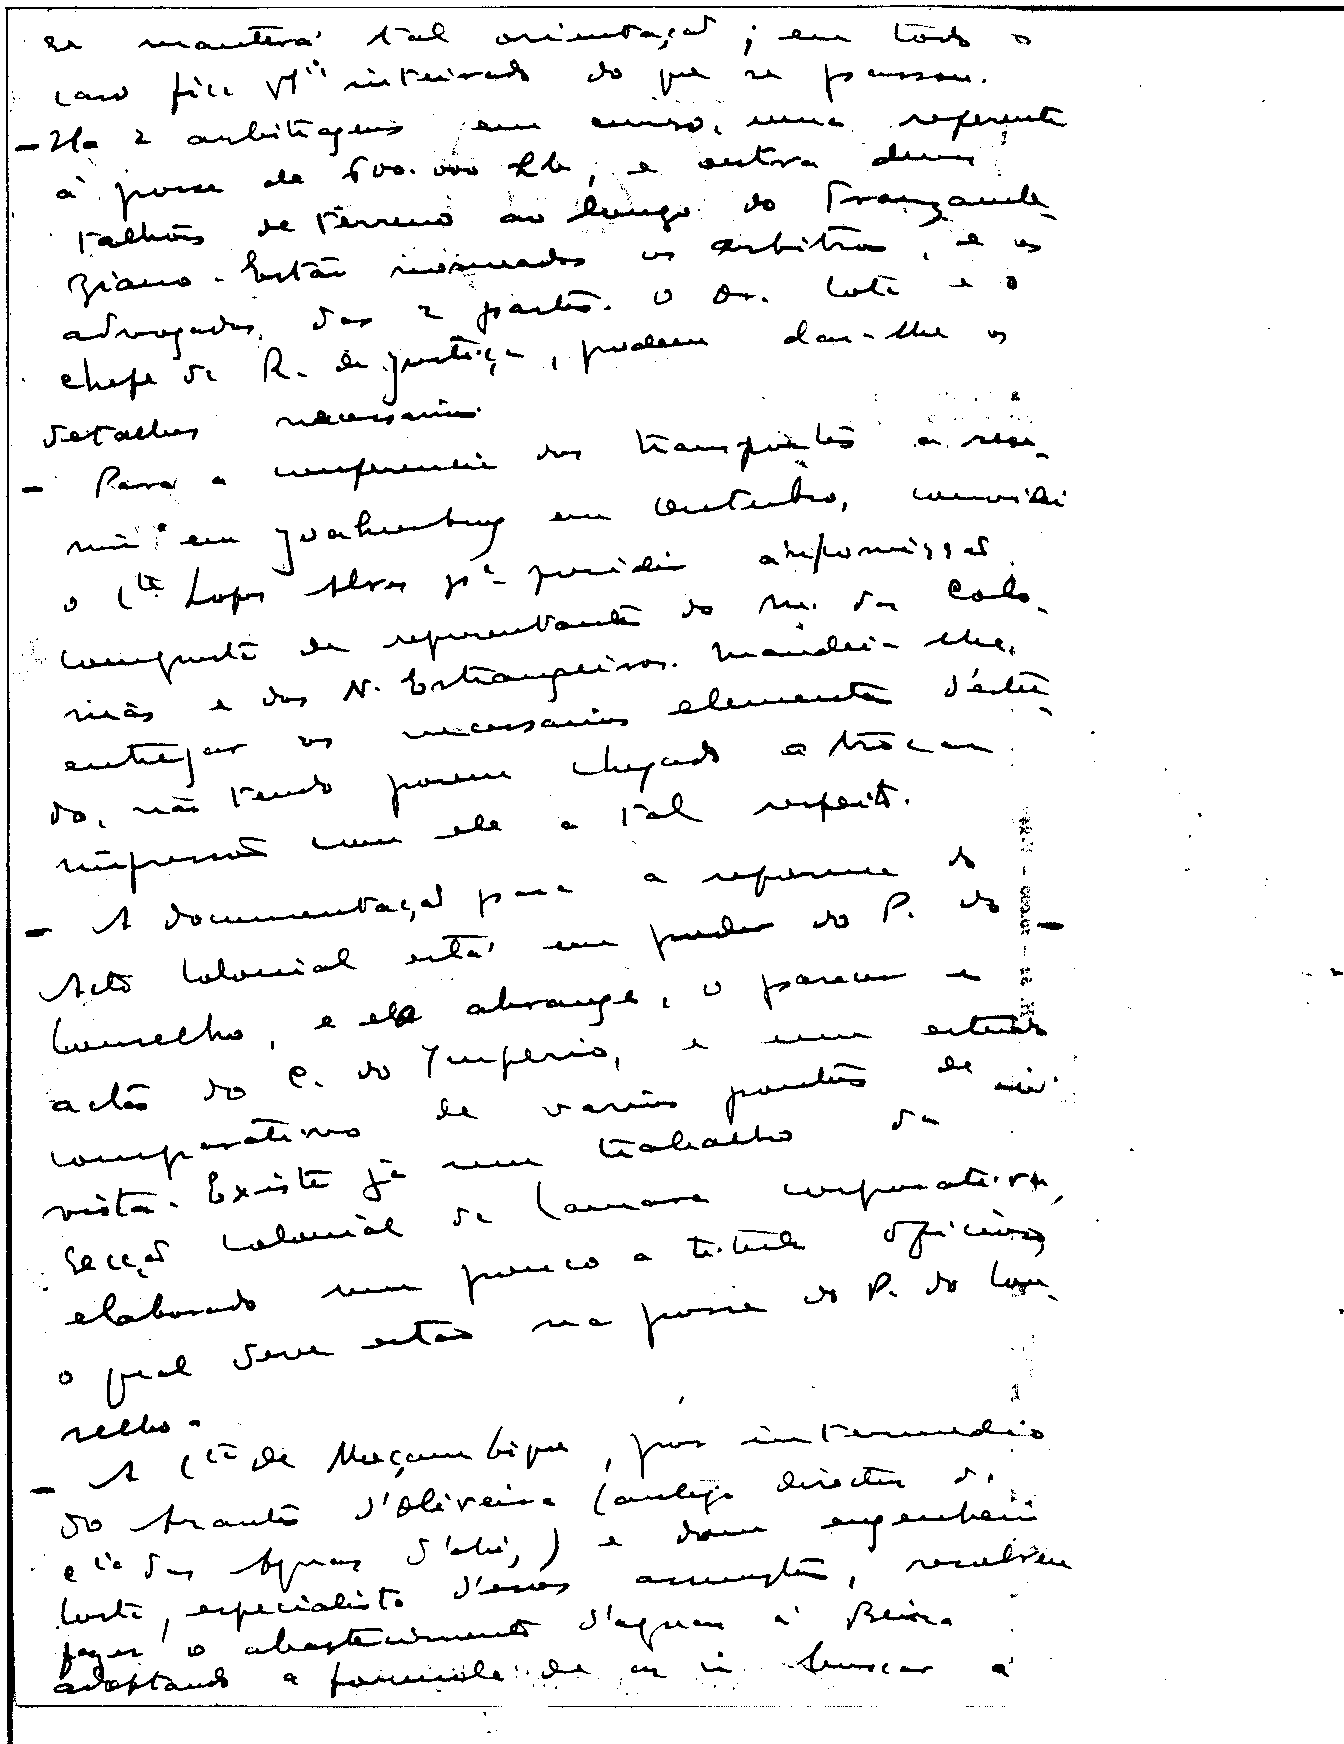 se manterá tal orientação; em todo o
caso fica V. inteirado do que se passou.
- Ha 2 arbitragens em curso, uma referente
à posse de 600.000 Lb, e outra duns
talhões de terreno ao longo do Transzambe-
ziano. Estão nomeados os arbitros, e os
advogados, das 2 partes. O Dr. Cota e o
chefe da R. de justiça, podem dar-lhe os
detalhes necessarios.
- Para a conferencia dos transportes a reu-
nir em Joahnesburg em Outubro, convidei
o Cte Lopes Alves pa presidir a uma missão
composta de representantes do M. das Colo-
nias e dos N. Estrangeiros. Mandei-lhe,
entregar os necessarios elementos d'estu-
do, não tendo porem chegado a trocar
impressões com ele a tal respeito.
- A documentação para a reforma do
Acto Colonial está em poder do P. do -
Conselho, e ela abrange, o parecer e
actas do C. do Imperio, e um estudo
comparativo de varios pontos de
vista. Existe já um trabalho da
Secção Colonial da Camara Corporativa,
elaborado um pouco a titulo oficioso,
o qual deve estar na posse do P. do Con-
selho.
- A Cia de Moçambique, por intermedio
do Arantes d'Oliveira (antigo director da
Cia das Aguas d'ahi,) e dum engenheiro
Costa, especialista d'esses assumptos, resolveu
fazer o abastecimento d'aguas à Beira
adoptando a formula de as ir buscar a